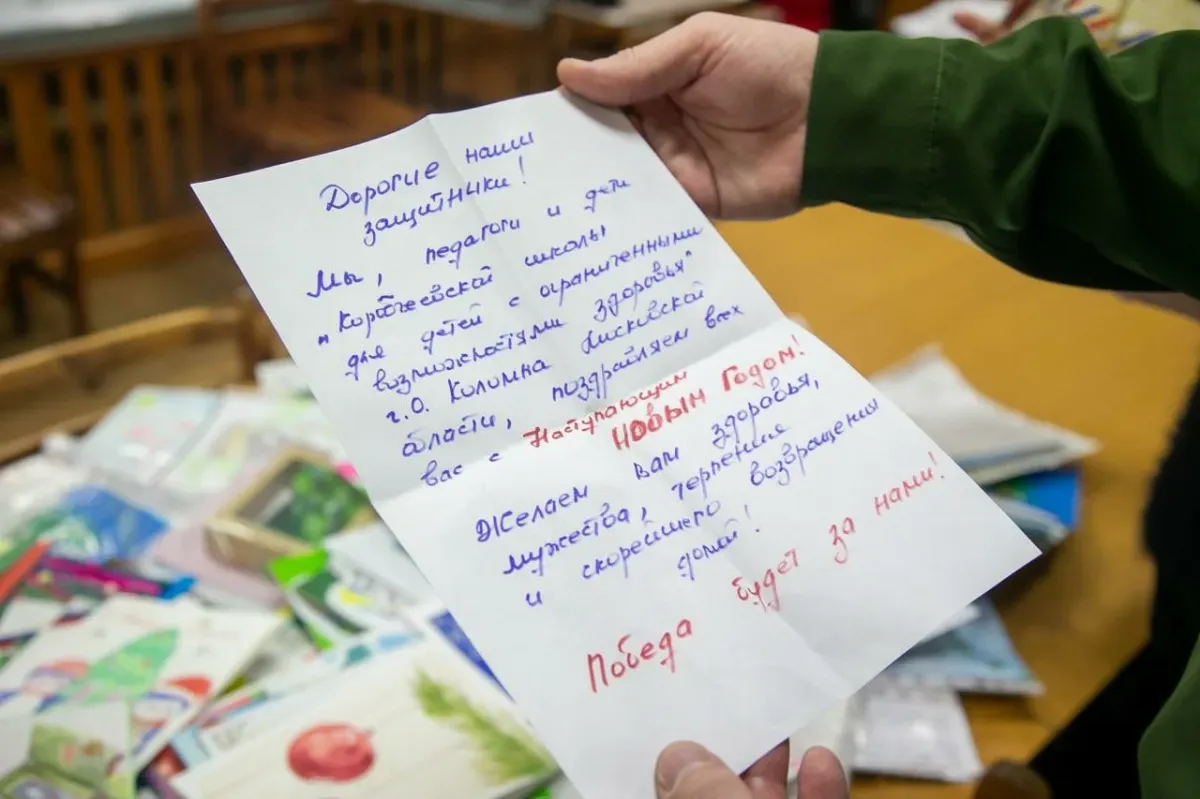 Дорогие наши
защитники!
Мы, педагоги и дети
"Коробчеевской школы
для детей с ограниченными
возможностями здоровья"
г.О. Коломна Московской
области, поздравляем всех
вас с Наступающим
Новым Годом!
Желаем вам здоровья,
мужества, терпения
и скорейшего возвращения
домой!
Победа будет за нами!